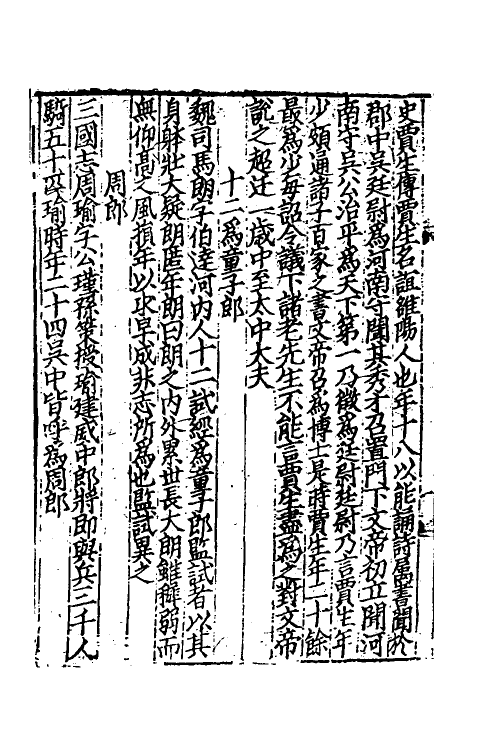 史賈生傳賈生名誼雒陽人也年十八以能誦詩屬書聞於
郡中吳廷尉為河南守聞其秀才召置門下文帝初立聞河
南守吳公治平為天下第一乃徵為廷尉廷尉乃言賈生年
少頗通諸子百家之書文帝召為博士是時賈生年二十餘
最為少每詔令議下諸老先生不能言賈生盡為之對文帝
說之超迁一歳中至太中大夫
十二為童子郎
魏司馬朗字伯達河内人十二試經為童子郎監試者以其
身躰壯大疑朗匿年朗曰朗之内外累世長大朗雖穉弱而
無仰髙之風損年以求早成非志所為也監試異之
周郎
三國志周瑜字公瑾孫策授瑜建威中郎將即與兵二千人
騎五十匹瑜時年二十四吳中皆呼為周郎